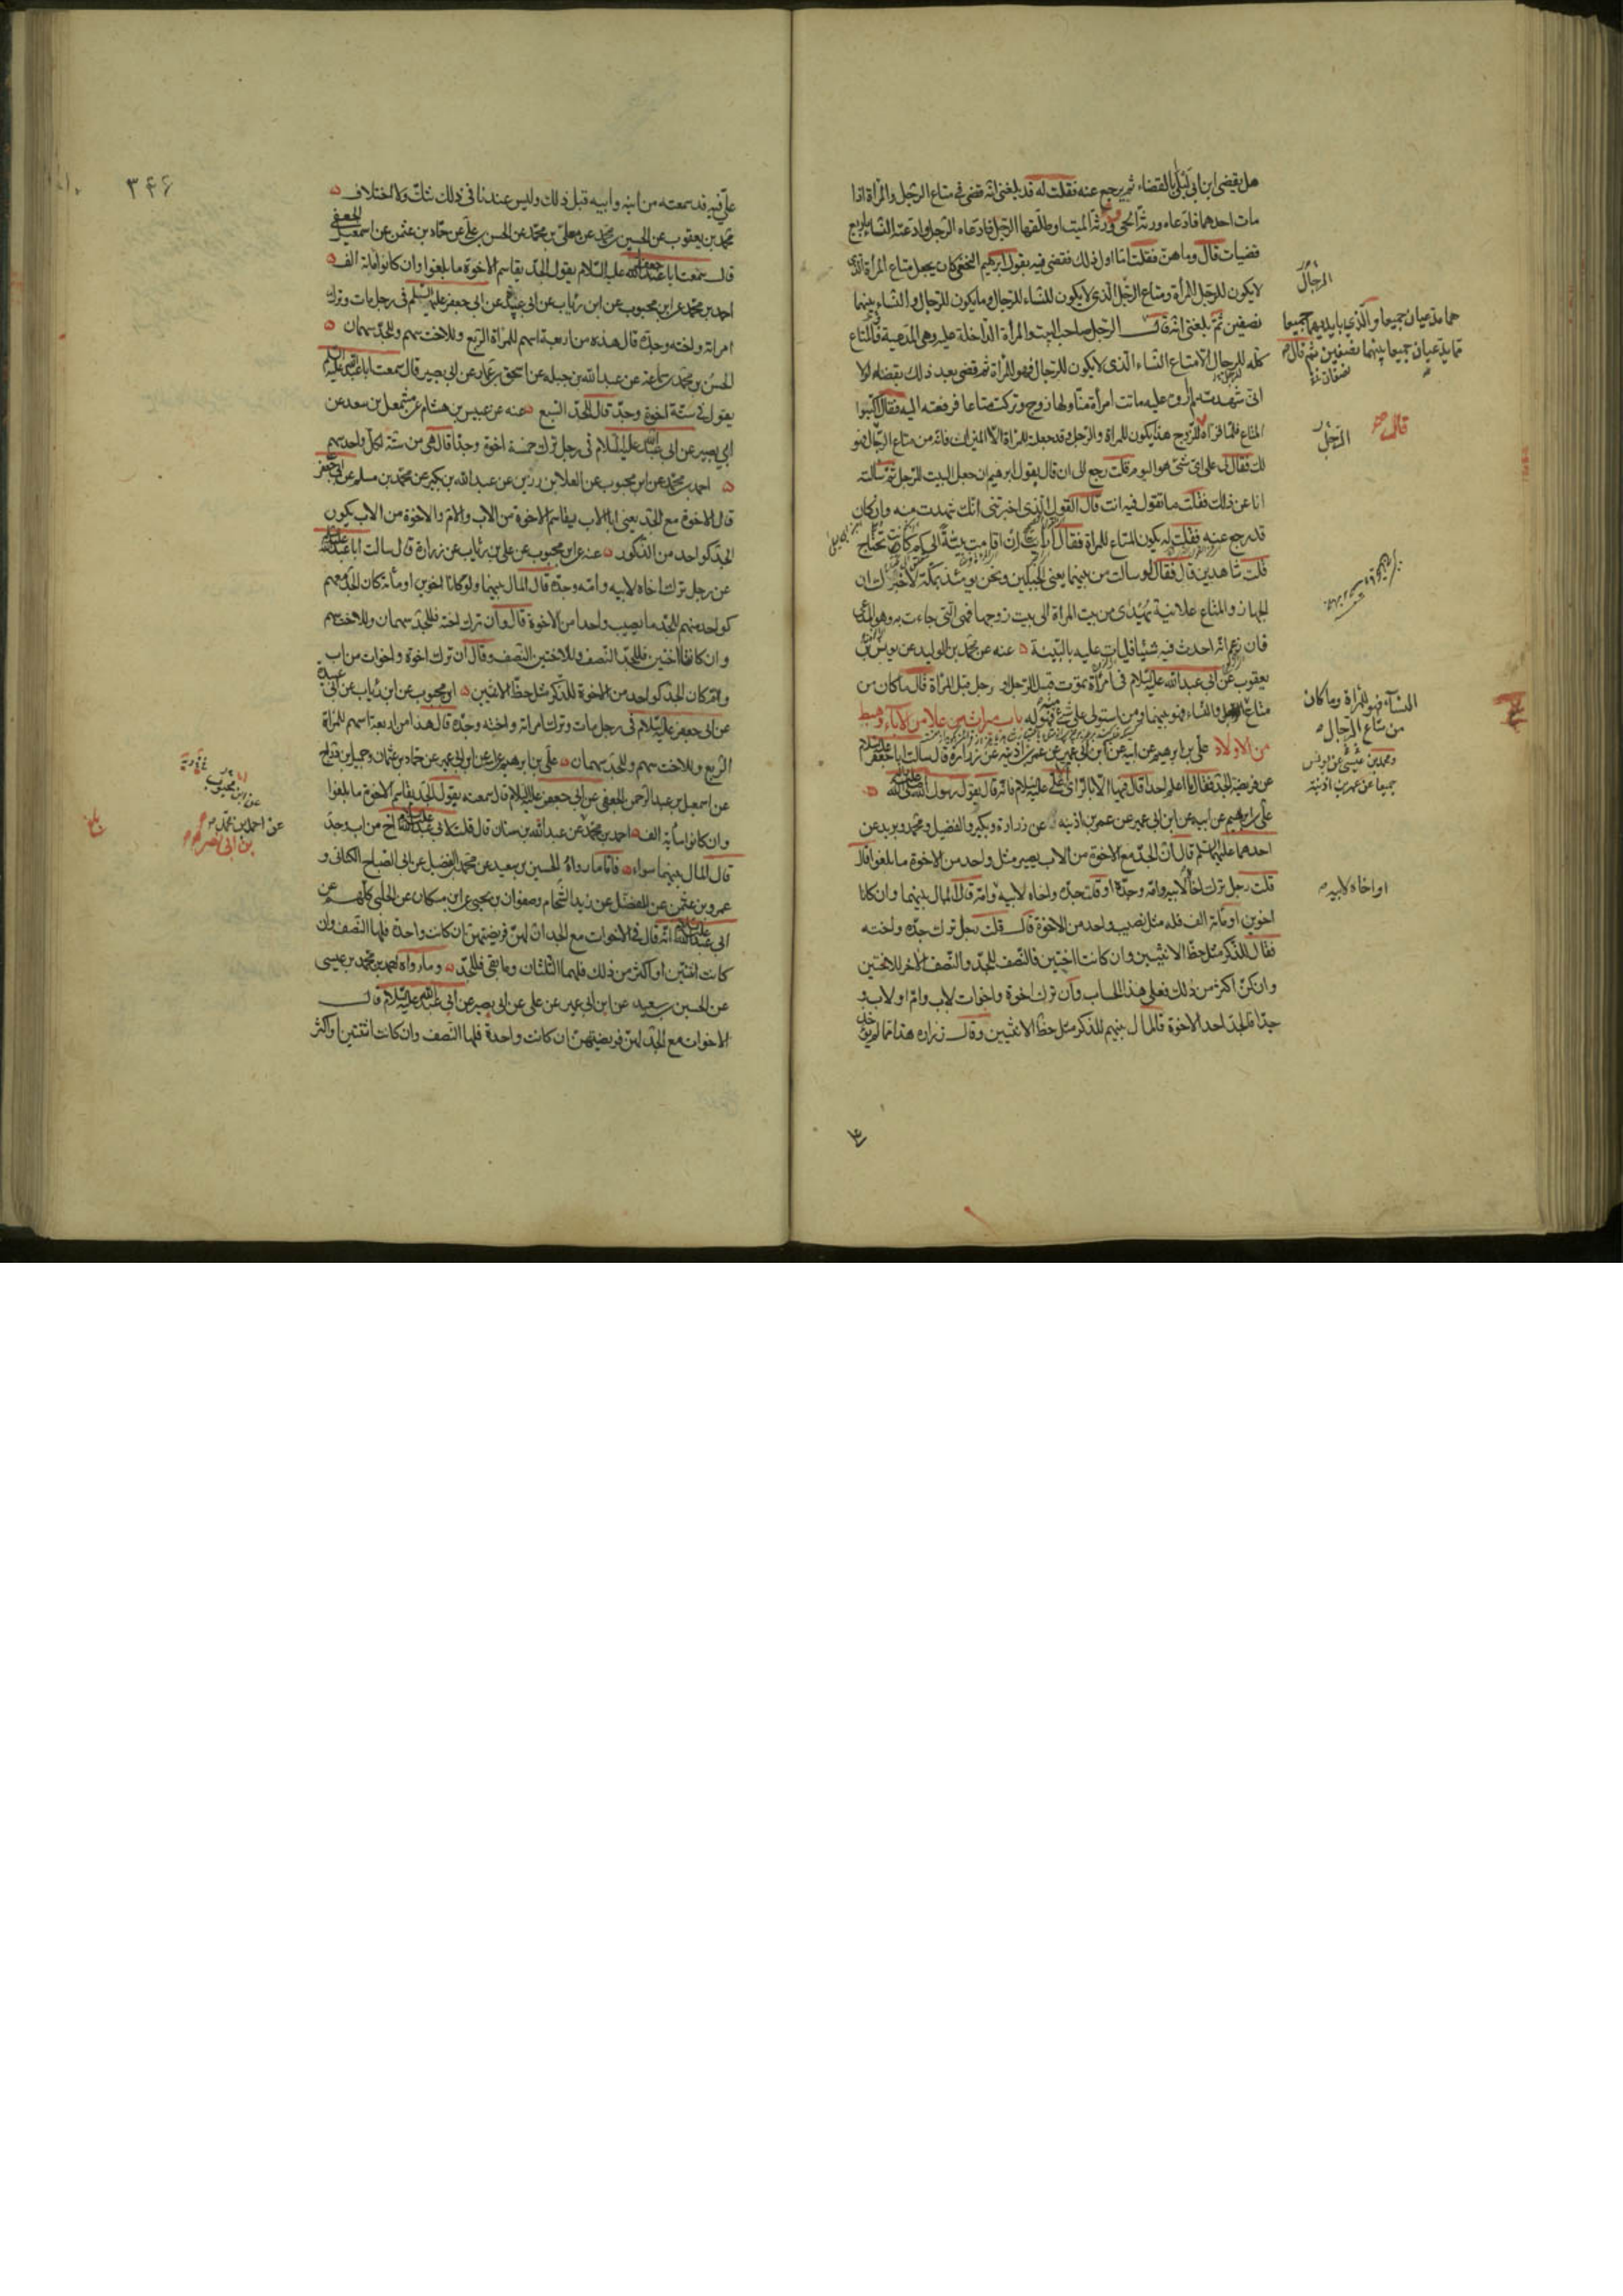 هل يقضى ابن ابى ليلى بالقضاء ثم يرجع عنه فقلت له قد بلغنى انه قضى فى متاع الرجل والمرأة اذا
مات احدهما فادعاه ورثة الحى وورثة الميت او طلقها الرجل فادعاه الرجل وادعته النساء باربع
قضيات قال وما هن فقلت اما اول ذلك فقضى فيه بقول ابرهيم النخعى كان يجعل متاع المرأة الذى
لا يكون للرجل للمرأة ومتاع الرجل الذى لا يكون للنساء للرجل وما يكون للرجال والنساء بينهما
نصفين ثم بلغنى انه قال الرجل صاحب البيت والمرأة الداخلة عليه وهى المدعية فالمتاع
كله للرجل الا متاع النساء الذى لا يكون للرجال فهو للمرأة ثم قضى بعد ذلك بقضاء لولا
انى شهدته لم اروه عليه ماتت امرأة منا ولها زوج وتركت متاعا فرفعته اليه فقال اكتبوا
المتاع فلما قراه للزوج هذا يكون للمرأة والرجل وقد جعلته للمرأة الا الميزان فانه من متاع الرجال فهو
لك فقال لى على اى شئ هو اليوم قلت رجع الى ان قال بقول ابرهيم ان جعل البيت للرجل ثم سالته
انا عن ذلك فقلت ما تقول فيه انت قال القول الذى اخبرتنى انك شهدت منه وان كان
قد رجع عنه فقلت له يكون المتاع للمرأة فقال ارايت ان اقامت بينة الى كم كانت تحتاج
قلت شاهدين قال فقال لو سالت من بينهما يعنى الجبلين ونحن يومئذ بمكة لاخبروك ان
الجهاز والمتاع علانية يهدى من بيت المراة الى بيت زوجها فهى التى جاءت به وهو المدعى
فان زعم انه احدث فيه شيئا فليات عليه بالبينة عنه عن محمد بن الوليد عن يونس بن
يعقوب عن ابى عبد الله عليه السلام فى امرأة تموت قبل الرجل او رجل قبل المرأة قال ما كان من
متاع الرجل والنساء فهو بينهما ومن استولى على شئ منه فهو له باب ميراث من علا من الاباء وهبط
من الاولاد على بن ابرهيم عن ابيه عن ابن ابى عمير عن عمر بن اذينه عن زرارة قال سالت ابا جعفر عليه السلام
عن فريضة الجد فقال ما اعلم احدا قال فيها الا بالراى الا على عليه السلام فانه قال بقول رسول الله صلى الله عليه
على بن ابرهيم عن ابيه عن ابن ابى عمير عن عمر بن اذينه عن زرارة وبكير والفضيل ومحمد وبريد عن
احدهما عليهما السلم قال ان الجد مع الاخوة من الاب يصير مثل واحد من الاخوة ما بلغوا قال
قلت رجل ترك اخاه لابيه وامه وجده او قلت جده واخاه لابيه وامه قال المال بينهما وان كانا
اخوين او مائة الف فله مثل نصيب واحد من الاخوة قال قلت رجل ترك جده واخته
فقال للذكر مثل حظ الانثيين وان كانتا اختين فالنصف للجد والنصف الاخر للاختين
وان كن اكثر من ذلك فعلى هذا الحساب وان ترك اخوة واخوات لاب وام او لاب و
جدا فالجد احد الاخوة فالمال بينهم للذكر مثل حظ الانثيين وقال زراره هذا مما لم يؤخذ
الرجال
هما يدعيان جميعا والذى بايديهما جميعا
مما يدعيان جميعا بينهما نصفين ثم قال
قال
الرجل
النساء فهو للمرأة وما كان
من متاع الرجال
ومحمد بن عيسى عن يونس
جميعا عن عمر بن اذينة
او اخاه لابيه
٣٤٦
على فيه قد سمعته من ابنه وابيه قبل ذلك وليس عندنا فى ذلك شك ولا اختلاف
محمد بن يعقوب عن الحسين بن محمد عن معلى بن محمد عن الحسن بن على عن حماد بن عثمن عن اسمعيل الجعفى
قال سمعت ابا جعفر عليه السلام يقول الجد يقاسم الاخوة ما بلغوا وان كانوا مائة الف
احمد بن محمد عن ابن محبوب عن ابن رئاب عن ابى عبيدة عن ابى جعفر عليه السلم فى رجل مات وترك
امراته واخته وجده قال هذه من اربعة اسهم للمرأة الربع وللاخت سهم وللجد سهمان
الحسن بن محمد بن سماعة عن عبد الله بن جبله عن اسحق بن عمار عن ابى بصير قال سمعت ابا عبد الله عليه السلام
يقول فى ستة اخوة وجد قال للجد السبع عنه عن عبيس بن هشام عن مشمعل بن سعد عن
ابى بصير عن ابى عبد الله عليه السلام فى رجل ترك خمسة اخوة وجدا قال هى من ستة لكل واحد سهم
احمد بن محمد عن ابن محبوب عن العلا بن رزين عن عبد الله بن بكير عن محمد بن مسلم عن ابى جعفر
قال الاخوة مع الجد يعنى ابا الاب يقاسم الاخوة من الاب والام والاخوة من الاب يكون
الجد كواحد من الذكور عنه عن ابن محبوب عن على بن رئاب عن زرارة قال سالت ابا عبد الله عليه السلام
عن رجل ترك اخاه لابيه وامه وجده قال المال بينهما ولو كانا اخوين او مائة كان الجد معهم
كواحد منهم للجد ما يصيب واحدا من الاخوة قال وان ترك اخته فللجد سهمان وللاخت سهم
وان كانتا اختين فللجد النصف وللاختين النصف وقال ان ترك اخوة واخوات من اب
وام كان الجد كواحد من الاخوة للذكر مثل حظ الانثيين ابن محبوب عن ابن رئاب عن ابى عبيدة
عن ابى جعفر عليه السلام فى رجل مات وترك امراته واخته وجده قال هذا من اربعة اسهم للمراة
الربع وللاخت سهم وللجد سهمان على بن ابرهيم عن ابيه عن ابن ابى عمير عن حماد بن عثمان وجميل بن دراج
عن اسمعيل بن عبد الرحمن الجعفى عن ابى جعفر عليه السلام قال سمعته يقول الجد يقاسم الاخوة ما بلغوا
وان كانوا مائة الف احمد بن محمد عن عبد الله بن سنان قال قلت لابى عبد الله عليه السلام اخ من اب وجد
قال المال بينهما سواء فاما ما رواه الحسين بن سعيد عن محمد بن الفضيل عن ابى الصباح الكنانى و
عمرو بن عثمن عن المفضل عن زيد الشحام وصفوان بن يحيى عن ابن مسكان عن الحلبى كلهم عن
ابى عبد الله عليه السلام انه قال فى الاخوات مع الجد ان لهن فريضتهن ان كانت واحدة فلها النصف وان
كانت اثنتين او اكثر من ذلك فلهما الثلثان وما بقى فللجد وما رواه احمد بن محمد بن عيسى
عن الحسين بن سعيد عن ابن ابى عمير عن على عن ابى بصير عن ابى عبد الله عليه السلام قال
الاخوات مع الجد لهن فريضتهن ان كانت واحدة فلها النصف وان كانت اثنتين او اكثر
عن ابن محبوب
عن احمد بن محمد
بن ابى نصر